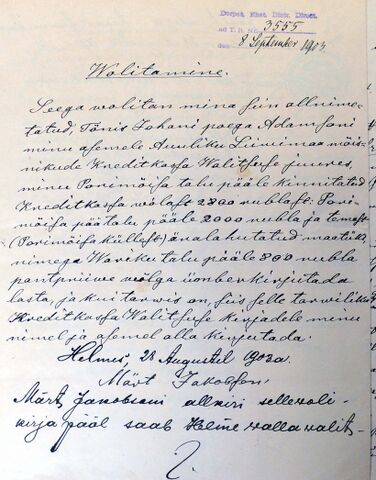 Dorpat. Ehst. Distr. Direct.
ad T. R. No. 3555
den 8 September 1903.
Wolitamine.
Seega wolitan mina siin allnime-
tatud, Tõnis Johani poega Adamsoni
minu asemele Auuliku Liiwimaa mõis-
nikude Kreditkassa Walitsuse juures,
minu Porimõisa talu pääle kinnitatud
Kreditkassa wõlast 2800 rublast: Pori-
mõisa päätalu pääle 2000 rubla ja temast
(Porimõisa küllest) äralahutatud maatük
nimega Wareku talu pääle 800 rubla
pantpriiwe wõlga ümberkirjutada
lasta, ja kui tarwis on, siis selle tarwiliku
Kreditkassa Walitsuse kirjadele minu
nimel ja asemel alla kirjutada.
Helmes, 28 Augustil 1903a.
Märt Jakobson
Märt Jakobsoni allkiri selle woli-
kirja pääl saab Helme walla walits-
2.